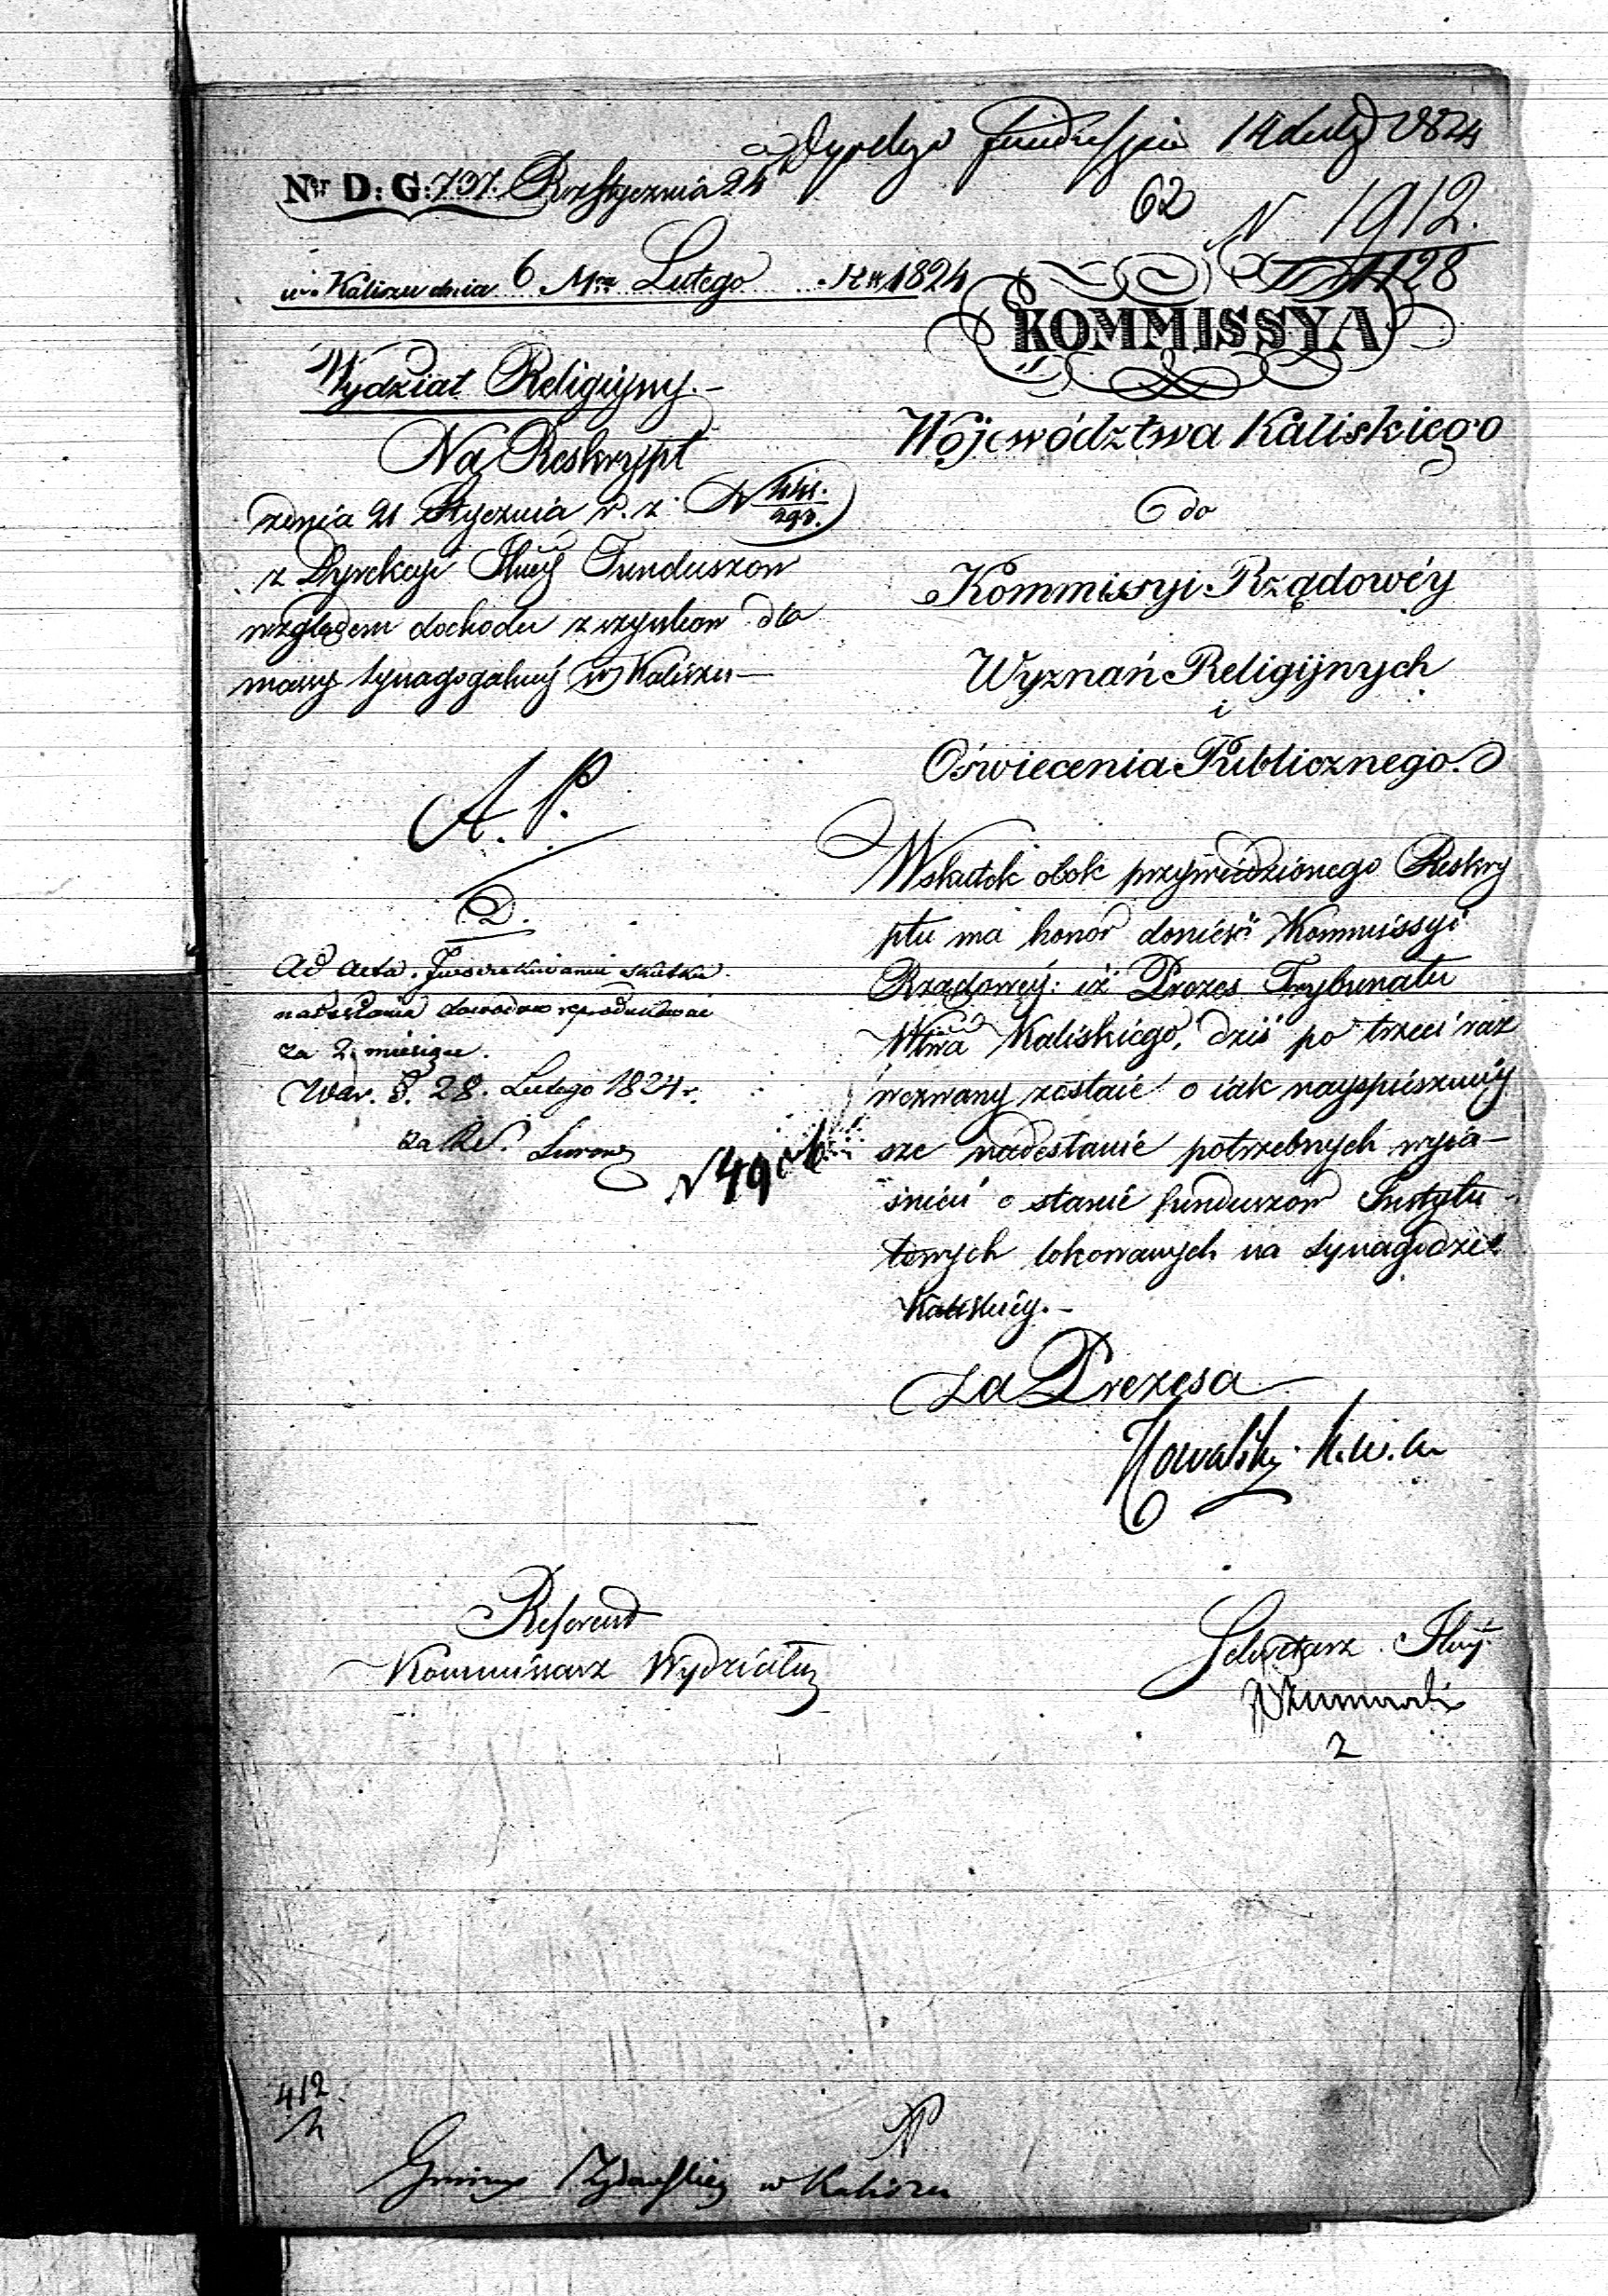 Dyrekcya Funduszów 14 Luty 1824
Ner D: G: 737.
62
N 1912.
1128
w Kaliszu dnia 6 Mca Lutego 1824
KOMMISSYA
Województwa Kaliskiego
do
Kommissyi Rządowéy
Wyznań Religijnych
i
Oświecenia Publicznego.
Wydział Religijny.
Na Reskrypt
z dnia 21 Stycznia r. z. N
z Dyrekcyi Funduszow
względem dochodu z czynszow dla
massy Synagogalnéy w Kaliszu
A. P.
D.
Ad acta. skutku
nadesłania dowodow reprodukować
za 2. miesiące.
War. d. 28. Lutego 1824 r.
za Ref.
N 49
Wskutek obok przywiedzionego Reskry
ptu ma honor donieść Kommissyi
Rządowéy: iż Prezes Trybunału
Wtwa Kaliskiego, dziś po trzeci raz
wezwany zostaie o iak nayspieszniéy
sze nadesłanie potrzebnych wyia-
śnień o stanie funduszow Instytu
towych lokowanych na Synagodze
Kaliskiéy.
Za Prezesa
Kowalski
Referent
Kommissarz Wydziału
Sekretarz
2
412
Gminy Żydowskiey w Kaliszu